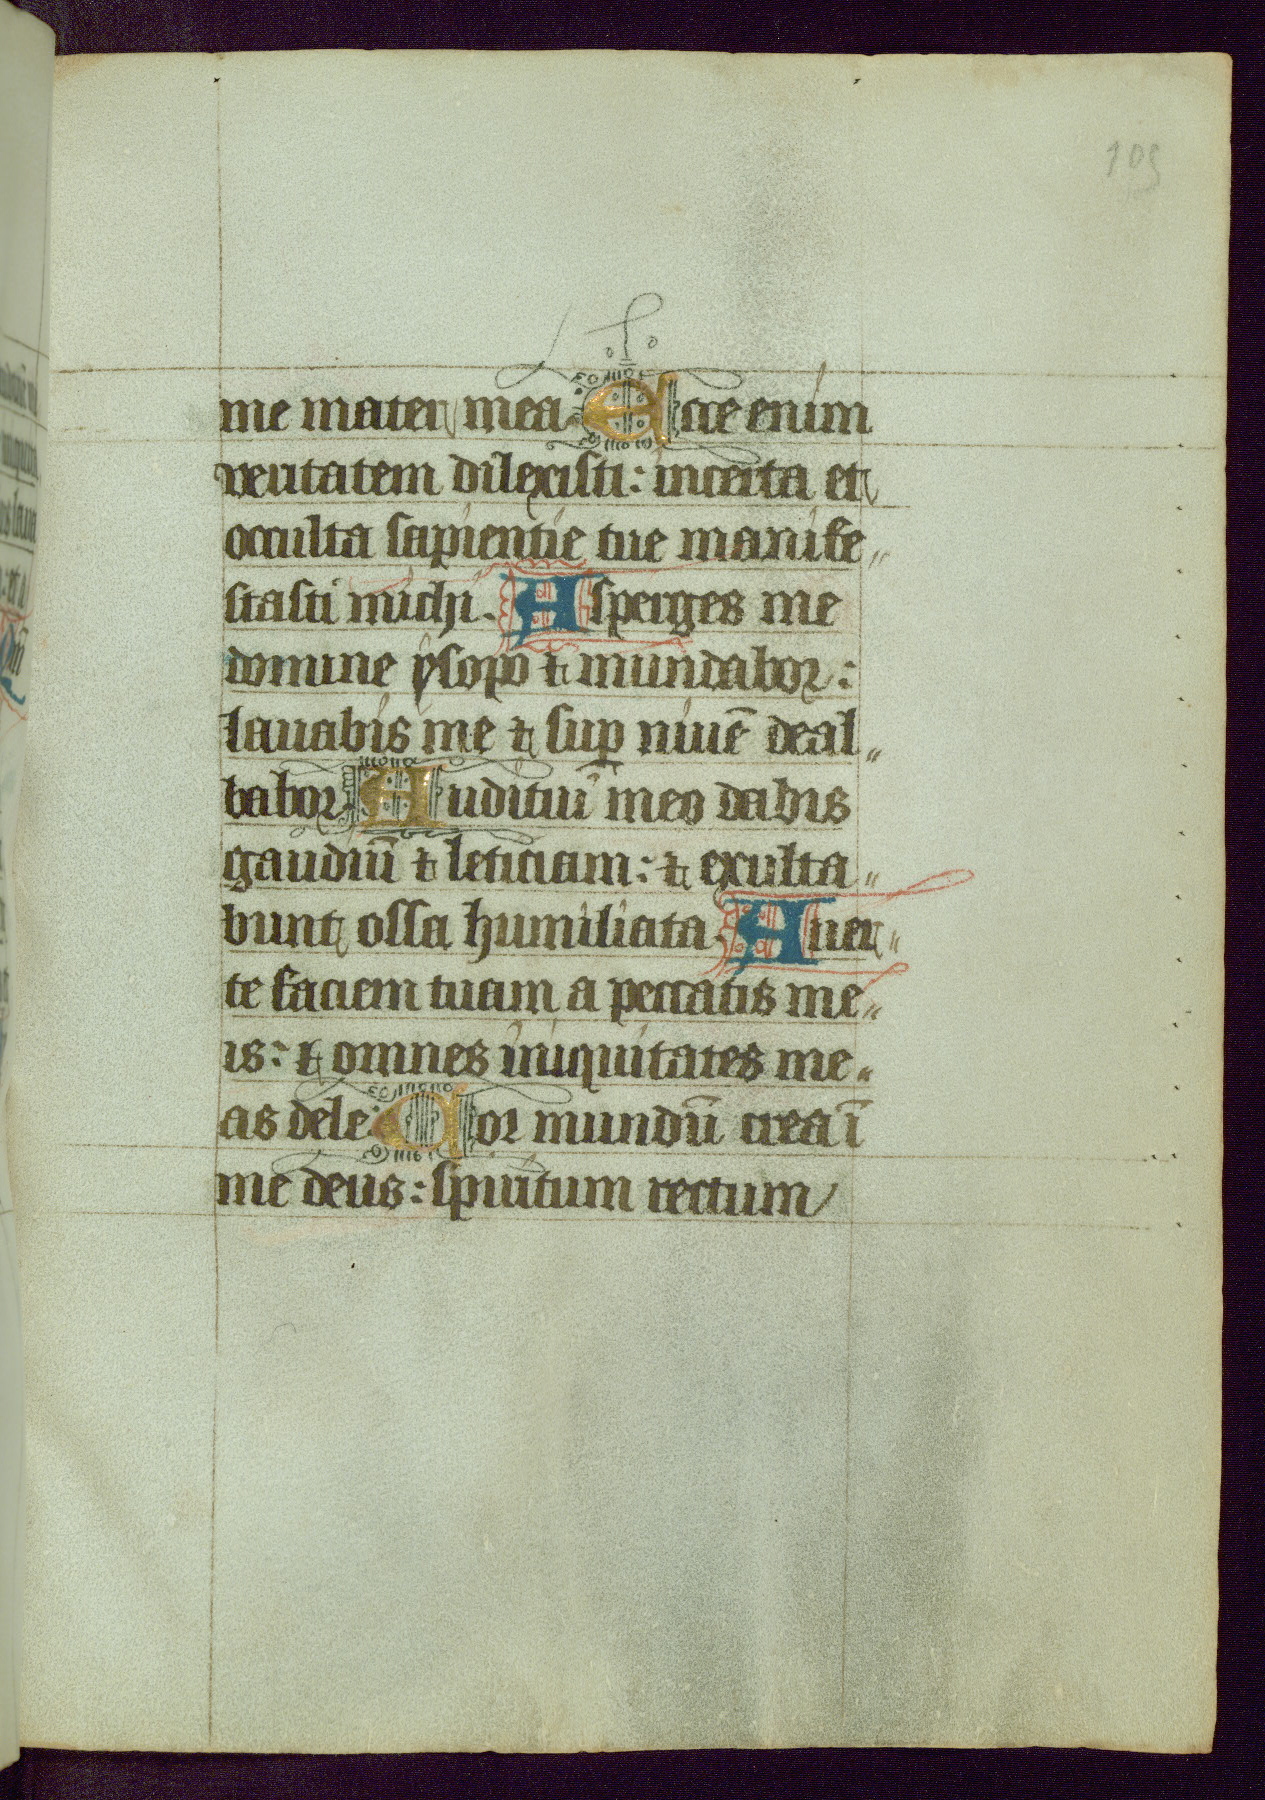 109
me mater mea. Ecce enim
veritatem dilexisti: incerta et
occulta sapientie tue manife„
stasti michi. Asperges me
domine ysopo ⁊ mundabor:
lauabis me ⁊ suꝑ niuē deal„
babor. Auditui meo dabis
gaudiū ⁊ leticiam: ⁊ exulta„
bunt ossa humiliata. Auer„
te faciem tuam a peccatis me„
is: ⁊ omnes iniquitates me„
as dele. Cor mundū crea ī
me deus: spiritum rectum